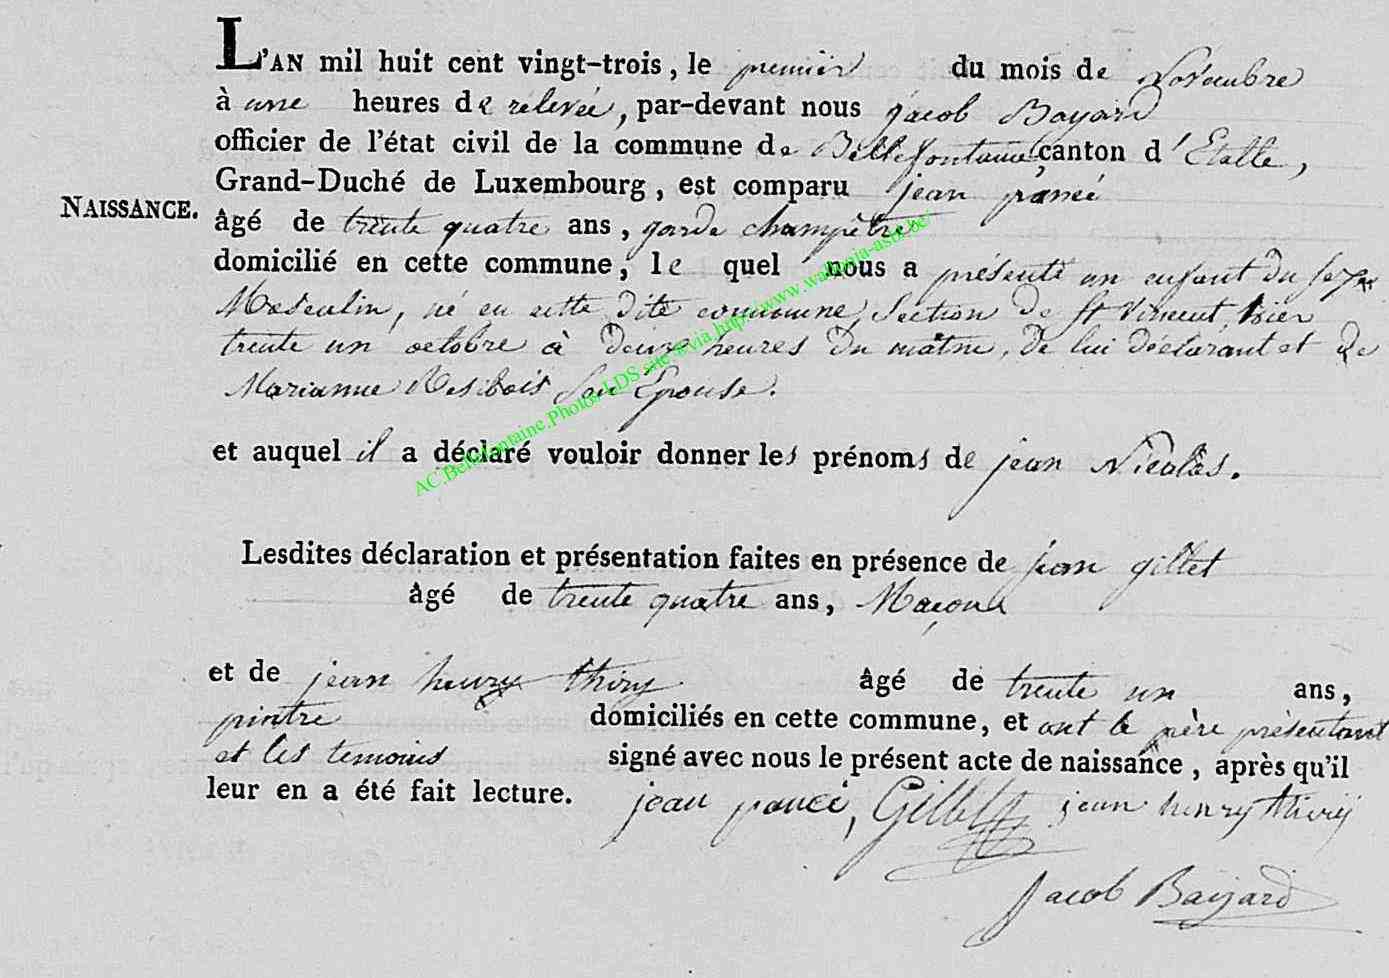 L'AN mil huit cent vingt-trois, le premier du mois de Novembre
à une heures de relevée, par-devant nous jacob Bayard
officier de l'état civil de la commune de Bellefontaine canton d'Etalle,
Grand-Duché de Luxembourg, est comparu jean pancé
NAISSANCE.
âgé de trente quatre ans, garde champêtre
domicilié en cette commune, le quel nous a présenté un enfant du sexe
Masculin, né en cette dite commune, Section de St Vincent, hier
trente un octobre à deux heures du matin, de lui déclarant et de
Marianne Resibois Son Epouse.
et auquel il a déclaré vouloir donner les prénoms de jean Nicolas.
Lesdites déclaration et présentation faites en présence de jean gillet
âgé de trente quatre ans, Maçon
et de jean henry thiry âgé de trente un ans,
pintre domiciliés en cette commune, et ont le père présentant
et les temoins signé avec nous le présent acte de naissance, après qu'il
leur en a été fait lecture. jean pancé, Gillet jean henry thiry
Jacob Bayard
AC.Bellefontaine.Photos LDS site via http://www.wallonia-asbl.be/